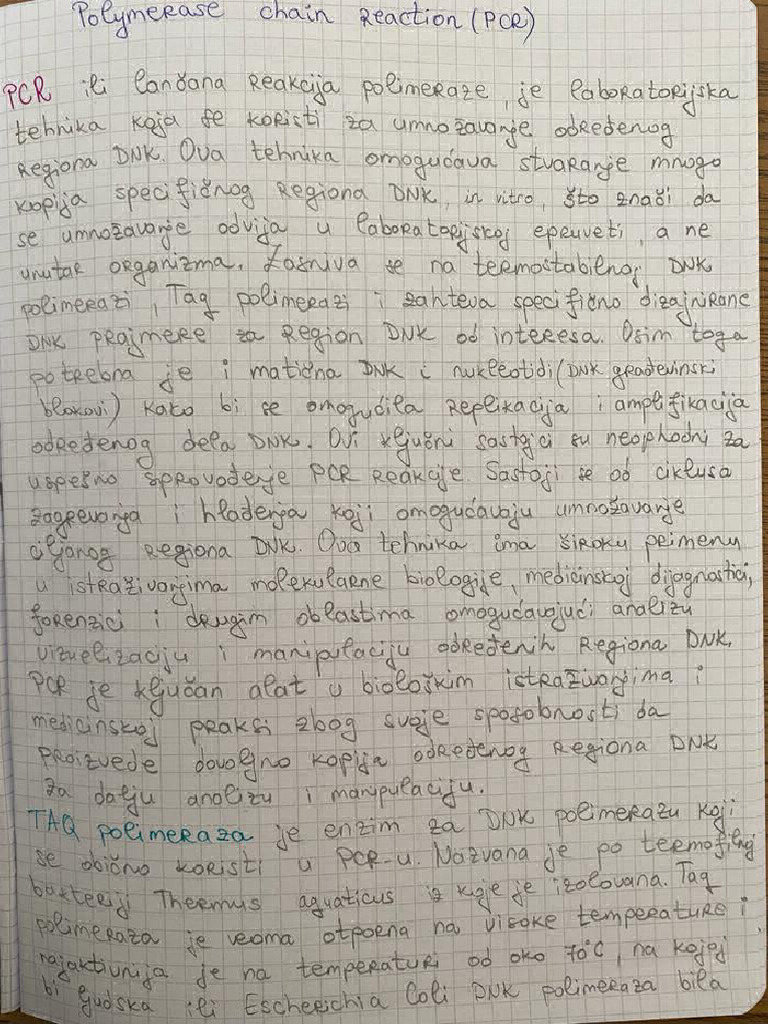 Polymerase chain Reaction (PCR)
PCR ili lančana Reakcija polimeraze, je laboratorijska
tehnika koja se koristi za umnožavanje određenog
Regiona DNK. Ova tehnika omogućava stvaranje mnogo
kopija specifičnog Regiona DNK, in vitro, što znači da
se umnožavanje odvija u laboratorijskoj epruveti, a ne
unutar organizma. Zasniva se na termostabilnoj DNK
polimerazi, Taq polimerazi i zahteva specifično dizajnirane
DNK prajmere za Region DNK od interesa. Osim toga
potrebna je i matična DNK i nukleotidi (DNK građevinski
blokovi) kako bi se omogućila Replikacija i amplifikacija
određenog dela DNK. Ovi ključni sastojci su neophodni za
uspešno sprovođenje PCR Reakcije. Sastoji se od ciklusa
zagrevanja i hlađenja koji omogućavaju umnožavanje
ciljanog Regiona DNK. Ova tehnika ima široku primenu
u istraživanjima molekularne biologije, medicinskoj dijagnostici,
forenzici i drugim oblastima omogućavajući analizu
vizuelizaciju i manipulaciju određenih Regiona DNK.
PCR je ključan alat u biološkim istraživanjima i
medicinskoj praksi zbog svoje sposobnosti da
proizvede dovoljno kopija određenog Regiona DNK
za dalju analizu i manipulaciju.
TAQ polimeraza je enzim za DNK polimerazu koji
se obično koristi u PCR-u. Nazvana je po termofilnoj
bakteriji Thermus aquaticus iz koje je izolovana. Taq
polimeraza je veoma otporna na visoke temperature i
najaktivnija je na temperaturi od oko 70°C, na kojoj
bi ljudska ili Escherichia Coli DNK polimeraza bila